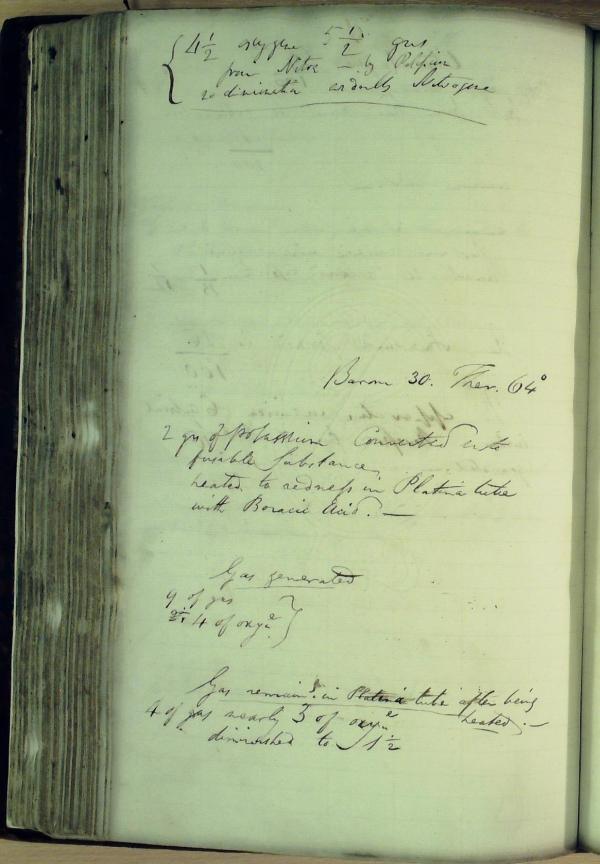 4 1/2 oxygene 5 1/2 gas
from Nitre — by Potassium
no diminution Nitrogene
Barom 30. Ther. 64°
2 grs of potassium Converted into
fusible Substance,
heated to redness in Platina tube
with Boracic Acid. —
Gas generated
9 of gas
4 of oxyne
Gas remaing in Platina tube after being
heated. —
4 of gas nearly 3 of oxyne
diminished to 1 1/2